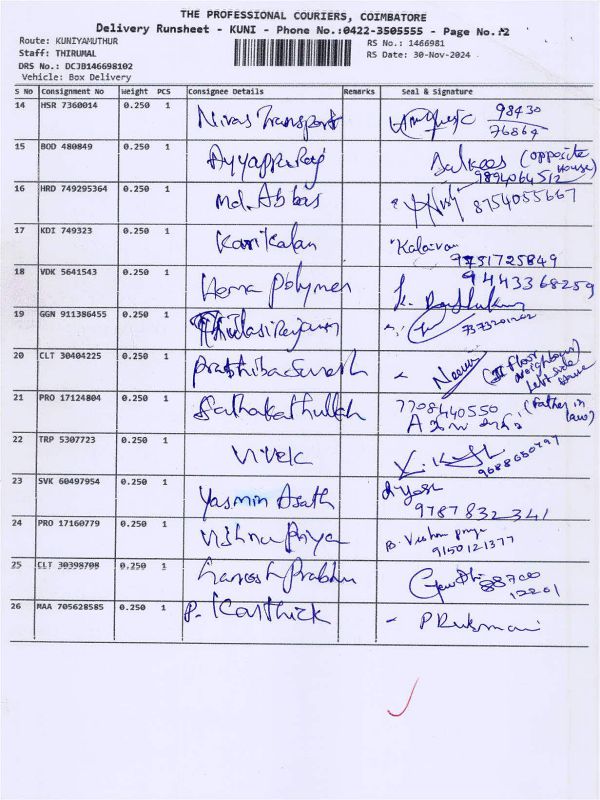 THE PROFESSIONAL COURIERS, COIMBATORE
Delivery Runsheet - KUNI - Phone No.:0422-3505555 - Page No.:2
Route: KUNIYAMUTHUR
RS No.: 1466981
Staff: THIRUMAL
RS Date: 30-Nov-2024
DRS No.: DCJB146698102
Vehicle: Box Delivery
S No Consignment No Weight PCS Consignee Details Remarks Seal & Signature
14 HSR 7360014 0.250 1 Nivas Transport 98430
76864
15 BOD 480849 0.250 1 Ayyappa Raj (opposite
House)
9894064512
16 HRD 749295364 0.250 1 Md. Abbas 8754055667
17 KDI 749323 0.250 1 Karikalan Kalaivan
9751725849
18 VDK 5641543 0.250 1 Hema Polymer 9443368259
19 GGN 911386455 0.250 1 Thulasi Rajaram 7373201202
20 CLT 30404225 0.250 1 Prathiba Suresh (II floor
neighbour)
Left side
house
21 PRO 17124804 0.250 1 Sathakathullah 7708440550 (Father in
law)
22 TRP 5307723 0.250 1 Vivek
23 SVK 60497954 0.250 1 Yasmin Asath
9787832341
24 PRO 17160779 0.250 1 Vishnu Priya B. Vishnu priya
9150121377
25 CLT 30398798 0.250 1 Ganesh Prabhu 88700
12201
26 MAA 705628585 0.250 1 P. Karthick - P Rukmani